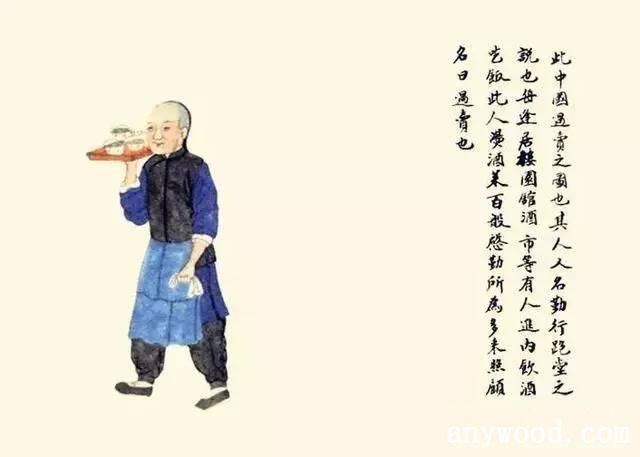 此中國過賣之圖也其人人名勤行跑堂之
說也每逢居樓園館酒市等有人進內飲酒
吃飯此人燙酒菜百般慇勤所為多来照顧
名曰過賣也
www.anywood.com